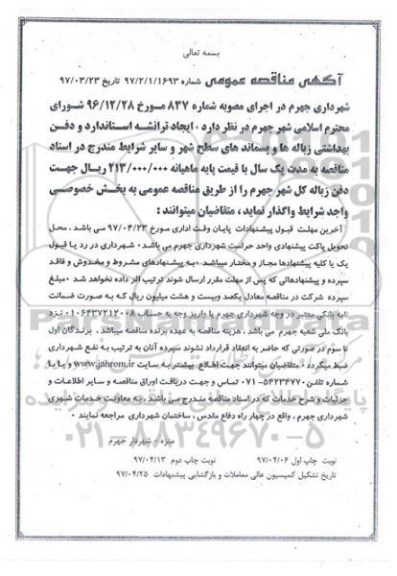 بسمه تعالی
آگهی مناقصه عمومی شماره ۹۷/۲/۱/۱۶۹۳ تاریخ ۹۷/۰۳/۲۳
شهرداری جهرم در اجرای مصوبه شماره ۸۳۷ مورخ ۹۶/۱۲/۲۸ شورای
محترم اسلامی شهر جهرم در نظر دارد ، ایجاد ترانشه استاندارد و دفن
بهداشتی زباله ها و پسماند های سطح شهر و سایر شرایط مندرج در اسناد
مناقصه به مدت یک سال با قیمت پایه ماهیانه ۲۱۳/۰۰۰/۰۰۰ ریال جهت
دفن زباله کل شهر جهرم را از طریق مناقصه عمومی به بخش خصوصی
واجد شرایط واگذار نماید ، متقاضیان میتوانند :
آخرین مهلت قبول پیشنهادات پایان وقت اداری مورخ ۹۷/۰۴/۲۳ می باشد ، محل
تحویل پاکت پیشنهادی واحد حراست شهرداری جهرم می باشد ، شهرداری در رد یا قبول
یک یا کلیه پیشنهادها مجاز و مختار میباشد ، به پیشنهادهای مشروط و مخدوش و فاقد
سپرده و پیشنهادهایی که پس از مهلت مقرر ارسال شوند ترتیب اثر داده نخواهد شد ، مبلغ
سپرده شرکت در مناقصه معادل یکصد وبیست و هشت میلیون ریال که به صورت ضمانت
نامه بانکی معتبر در وجه شهرداری جهرم یا واریز وجه به حساب ۰۱۰۶۴۳۷۲۱۲۰۰۸ نزد
بانک ملی شعبه جهرم می باشد ، هزینه مناقصه به عهده برنده مناقصه میباشد ، برندگان اول
تا سوم در صورتی که حاضر به انعقاد قرارداد نشوند سپرده آنان به ترتیب به نفع شهرداری
ضبط میگردد ، متقاضیان میتوانند جهت اطلاع بیشتر به سایت www.jahrom.ir و یا با
شماره تلفن ۵۴۲۳۴۷۷۰-۰۷۱ تماس و جهت دریافت اوراق مناقصه و سایر اطلاعات و
جزئیات و شرح خدمات که در اسناد مناقصه مندرج می باشد ، به معاونت خدمات شهری
شهرداری جهرم ، واقع در چهار راه دفاع مقدس ، ساختمان شهرداری مراجعه نمایند .
شهردار جهرم
نوبت چاپ اول ۹۷/۰۴/۰۶ نوبت چاپ دوم ۹۷/۰۴/۱۳
تاریخ تشکیل کمیسیون عالی معاملات و بازگشایی پیشنهادات ۹۷/۰۴/۲۵
۰۲۱-۸۸۳۴۹۶۷۰-۵